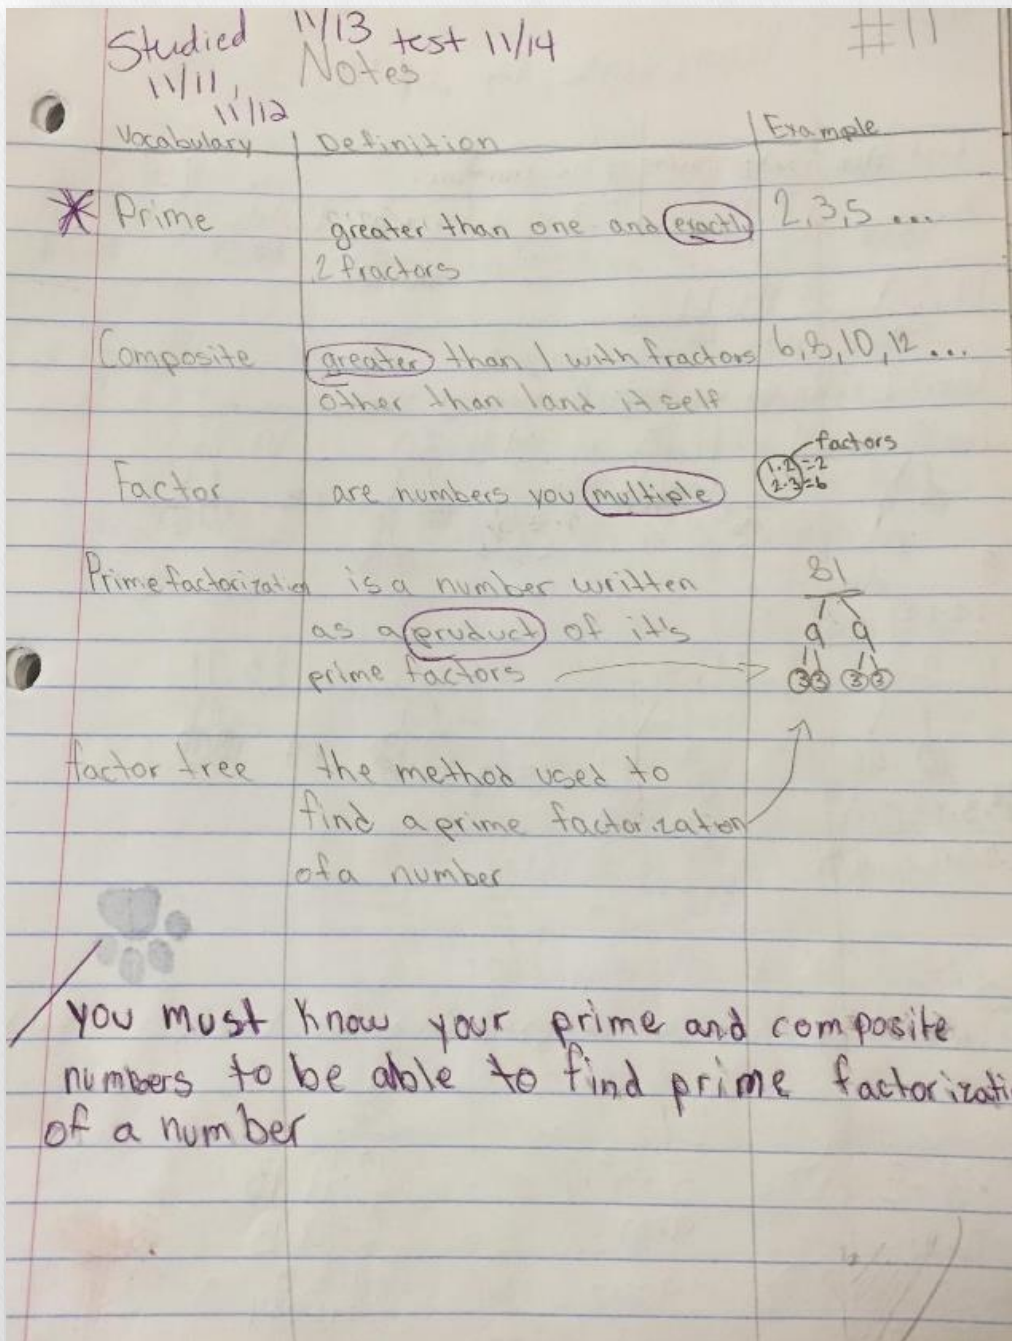 Studied 11/13 test 11/14 #11
11/11, Notes
11/12
Vocabulary Definition Example
Prime greater than one and exactly 2,3,5 ...
2 fractors
Composite greater than 1 with fractors 6,8,10,12 ...
other than 1 and it self
factors
Factor are numbers you multiple 1·2=2
2·3=6
Prime factorization is a number written 81
as a pruduct of it's 9 9
prime factors 3 3 3 3
factor tree the method used to
find a prime factorization
of a number
you must know your prime and composite
numbers to be able to find prime factorizati
of a number